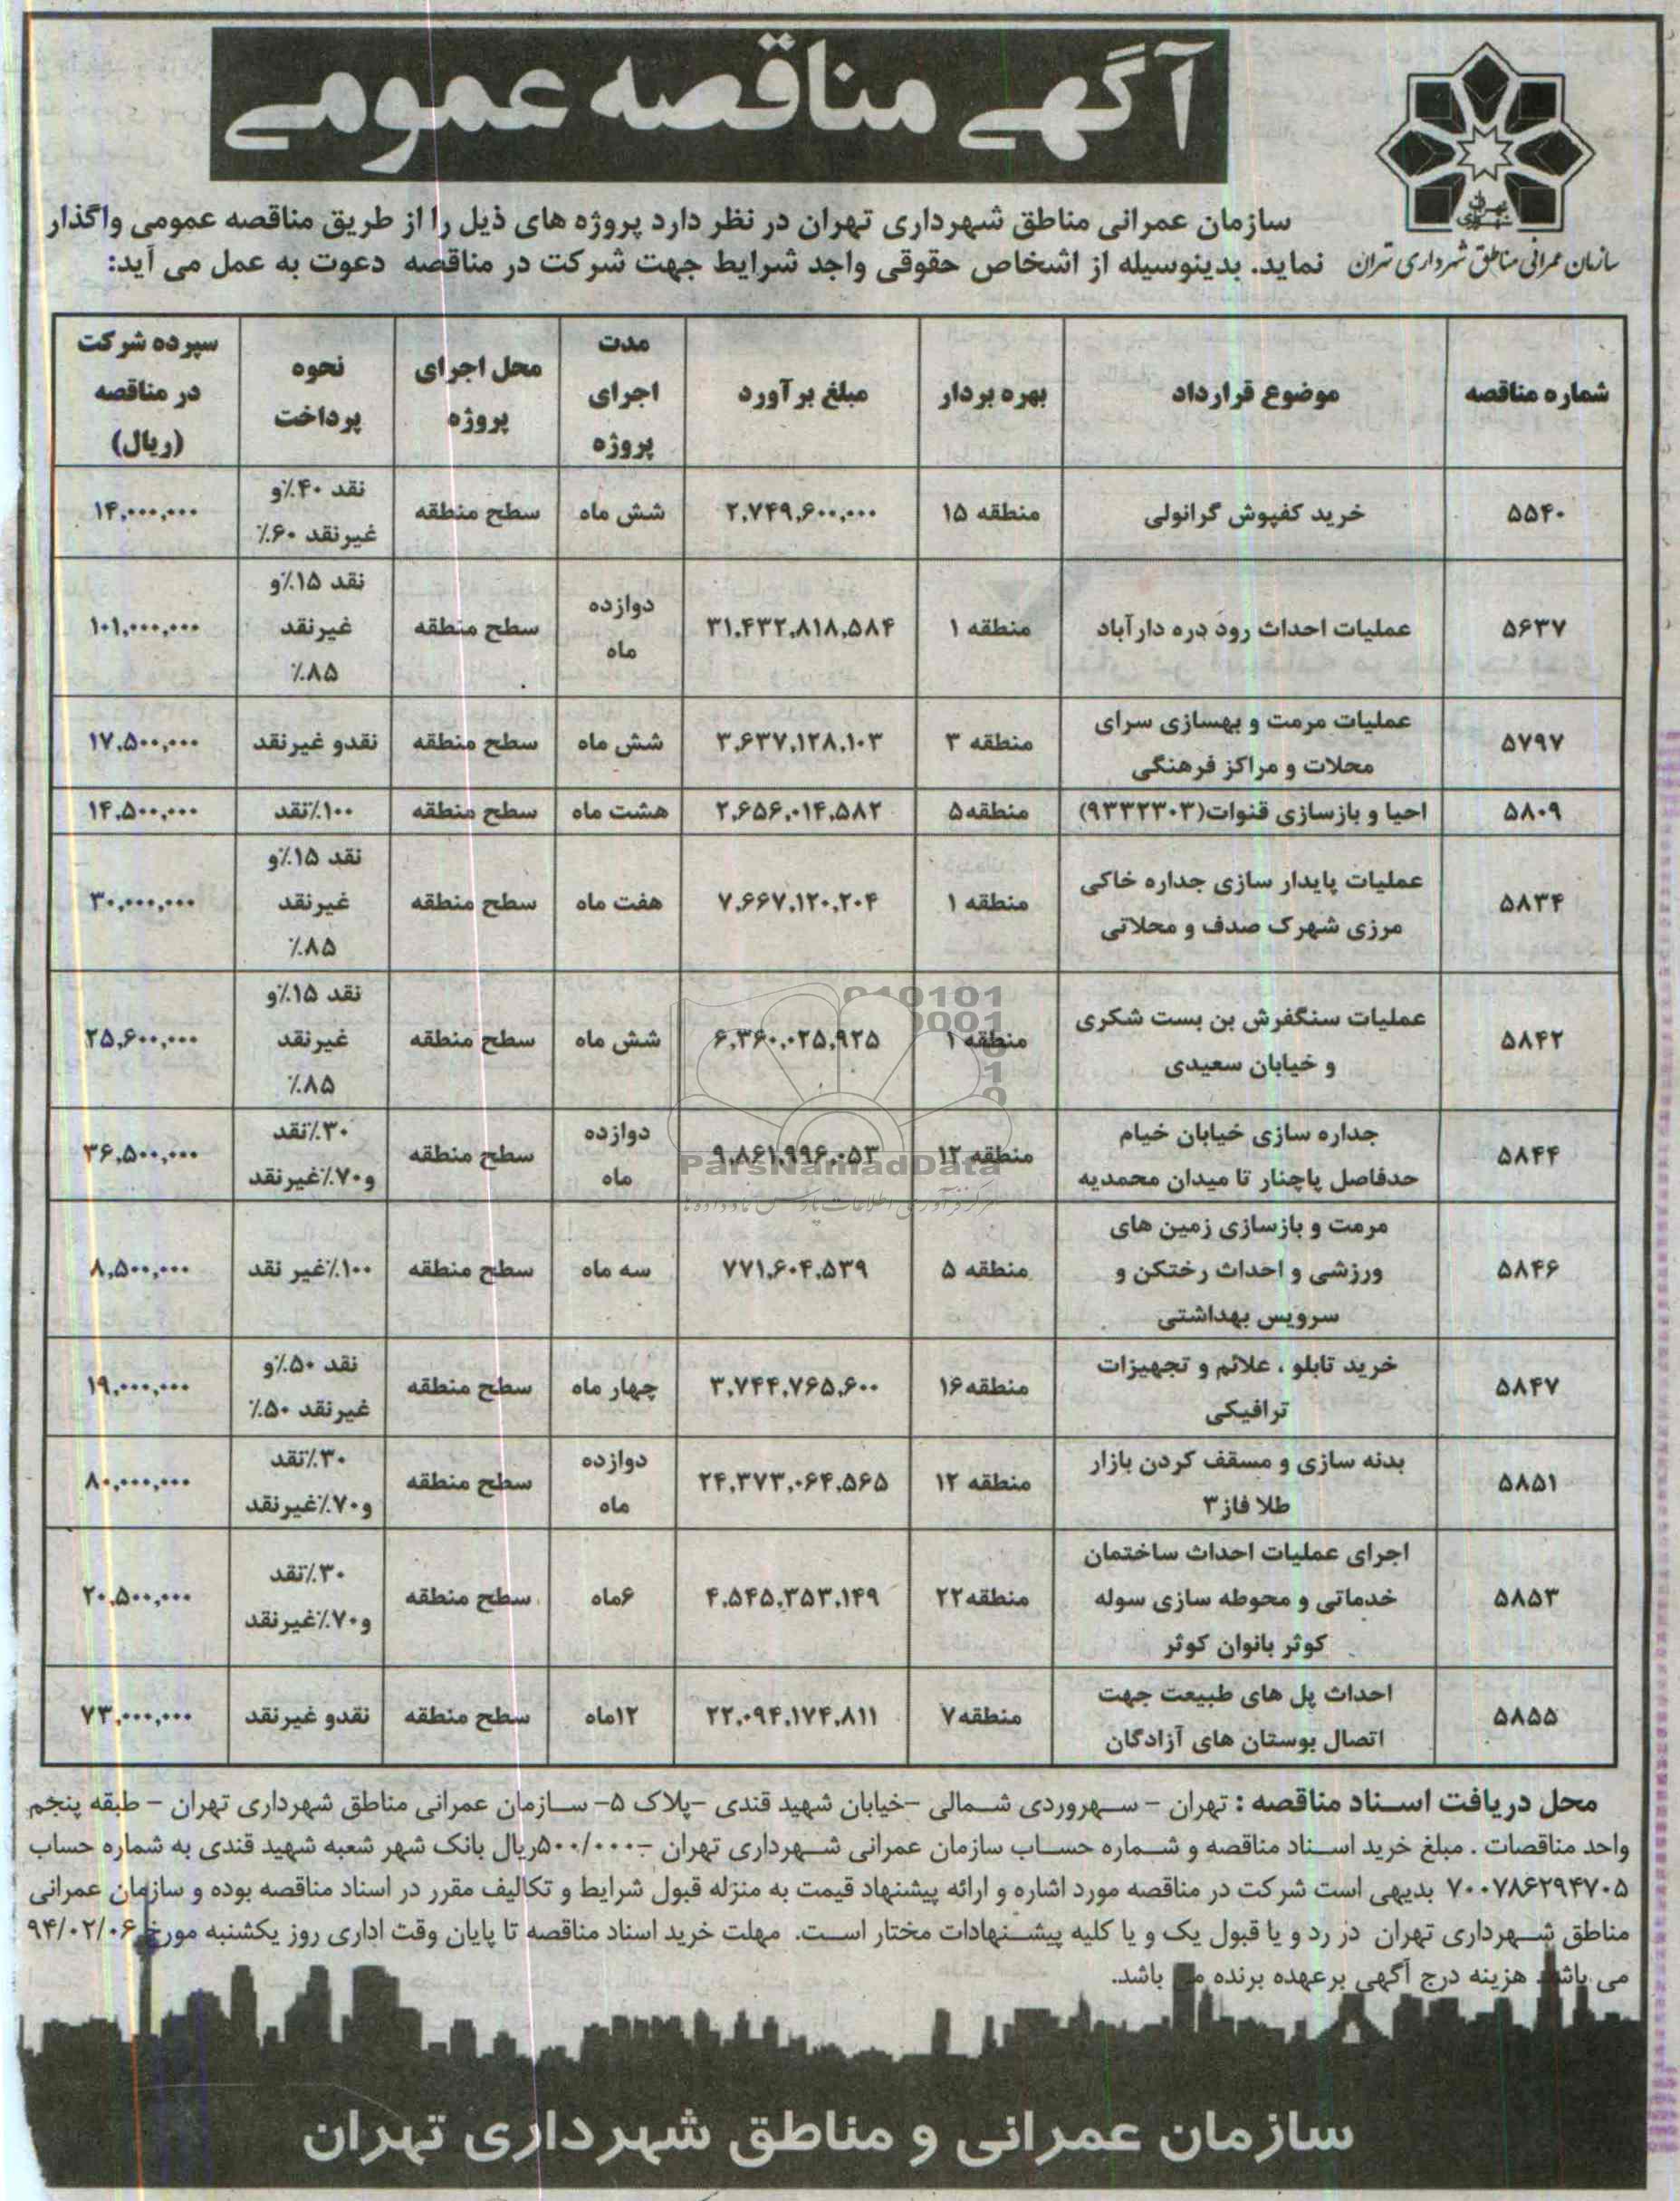 آگهی مناقصه عمومی
تهران
شهرداری
سازمان عمرانی مناطق شهرداری تهران
سازمان عمرانی مناطق شهرداری تهران در نظر دارد پروژه های ذیل را از طریق مناقصه عمومی واگذار
نماید. بدینوسیله از اشخاص حقوقی واجد شرایط جهت شرکت در مناقصه دعوت به عمل می آید:
شماره مناقصه | موضوع قرارداد | بهره بردار | مبلغ برآورد | مدت اجرای پروژه | محل اجرای پروژه | نحوه پرداخت | سپرده شرکت در مناقصه (ریال)
۵۵۴۰ | خرید کفپوش گرانولی | منطقه ۱۵ | ۲,۷۴۹,۶۰۰,۰۰۰ | شش ماه | سطح منطقه | نقد ۴۰٪و غیرنقد ۶۰٪ | ۱۴,۰۰۰,۰۰۰
۵۶۳۷ | عملیات احداث رود دره دارآباد | منطقه ۱ | ۳۱,۴۳۲,۸۱۸,۵۸۴ | دوازده ماه | سطح منطقه | نقد ۱۵٪و غیرنقد ۸۵٪ | ۱۰۱,۰۰۰,۰۰۰
۵۷۹۷ | عملیات مرمت و بهسازی سرای محلات و مراکز فرهنگی | منطقه ۳ | ۳,۶۳۷,۱۲۸,۱۰۳ | شش ماه | سطح منطقه | نقدو غیرنقد | ۱۷,۵۰۰,۰۰۰
۵۸۰۹ | احیا و بازسازی قنوات(۹۳۳۲۳۰۳) | منطقه۵ | ۲,۶۵۶,۰۱۴,۵۸۲ | هشت ماه | سطح منطقه | ۱۰۰٪نقد | ۱۴,۵۰۰,۰۰۰
۵۸۳۴ | عملیات پایدار سازی جداره خاکی مرزی شهرک صدف و محلاتی | منطقه ۱ | ۷,۶۶۷,۱۲۰,۲۰۴ | هفت ماه | سطح منطقه | نقد ۱۵٪و غیرنقد ۸۵٪ | ۳۰,۰۰۰,۰۰۰
۵۸۴۲ | عملیات سنگفرش بن بست شکری و خیابان سعیدی | منطقه ۱ | ۶,۳۶۰,۰۲۵,۹۲۵ | شش ماه | سطح منطقه | نقد ۱۵٪و غیرنقد ۸۵٪ | ۲۵,۶۰۰,۰۰۰
۵۸۴۴ | جداره سازی خیابان خیام حدفاصل پاچنار تا میدان محمدیه | منطقه ۱۲ | ۹,۸۶۱,۹۹۶,۰۵۳ | دوازده ماه | سطح منطقه | ۳۰٪نقد و۷۰٪غیرنقد | ۳۶,۵۰۰,۰۰۰
۵۸۴۶ | مرمت و بازسازی زمین های ورزشی و احداث رختکن و سرویس بهداشتی | منطقه ۵ | ۷۷۱,۶۰۴,۵۳۹ | سه ماه | سطح منطقه | ۱۰۰٪غیر نقد | ۸,۵۰۰,۰۰۰
۵۸۴۷ | خرید تابلو ، علائم و تجهیزات ترافیکی | منطقه۱۶ | ۳,۷۴۴,۷۶۵,۶۰۰ | چهار ماه | سطح منطقه | نقد ۵۰٪و غیرنقد ۵۰٪ | ۱۹,۰۰۰,۰۰۰
۵۸۵۱ | بدنه سازی و مسقف کردن بازار طلا فاز۳ | منطقه ۱۲ | ۲۴,۳۷۳,۰۶۴,۵۶۵ | دوازده ماه | سطح منطقه | ۳۰٪نقد و۷۰٪غیرنقد | ۸۰,۰۰۰,۰۰۰
۵۸۵۳ | اجرای عملیات احداث ساختمان خدماتی و محوطه سازی سوله کوثر بانوان کوثر | منطقه۲۲ | ۴,۵۴۵,۳۵۳,۱۴۹ | ۶ماه | سطح منطقه | ۳۰٪نقد و۷۰٪غیرنقد | ۲۰,۵۰۰,۰۰۰
۵۸۵۵ | احداث پل های طبیعت جهت اتصال بوستان های آزادگان | منطقه۷ | ۲۲,۰۹۴,۱۷۴,۸۱۱ | ۱۲ماه | سطح منطقه | نقدو غیرنقد | ۷۳,۰۰۰,۰۰۰
010101
0001
ParsNamadData
مرکز فرآوری اطلاعات پارس نماد داده ها
محل دریافت اسناد مناقصه : تهران - سهروردی شمالی -خیابان شهید قندی -پلاک ۵- سازمان عمرانی مناطق شهرداری تهران - طبقه پنجم
واحد مناقصات . مبلغ خرید اسناد مناقصه و شماره حساب سازمان عمرانی شهرداری تهران -۵۰۰/۰۰۰ریال بانک شهر شعبه شهید قندی به شماره حساب
۷۰۰۷۸۶۲۹۴۷۰۵ بدیهی است شرکت در مناقصه مورد اشاره و ارائه پیشنهاد قیمت به منزله قبول شرایط و تکالیف مقرر در اسناد مناقصه بوده و سازمان عمرانی
مناطق شهرداری تهران در رد و یا قبول یک و یا کلیه پیشنهادات مختار است. مهلت خرید اسناد مناقصه تا پایان وقت اداری روز یکشنبه مورخ ۹۴/۰۲/۰۶
می باشد هزینه درج آگهی برعهده برنده می باشد.
سازمان عمرانی و مناطق شهرداری تهران